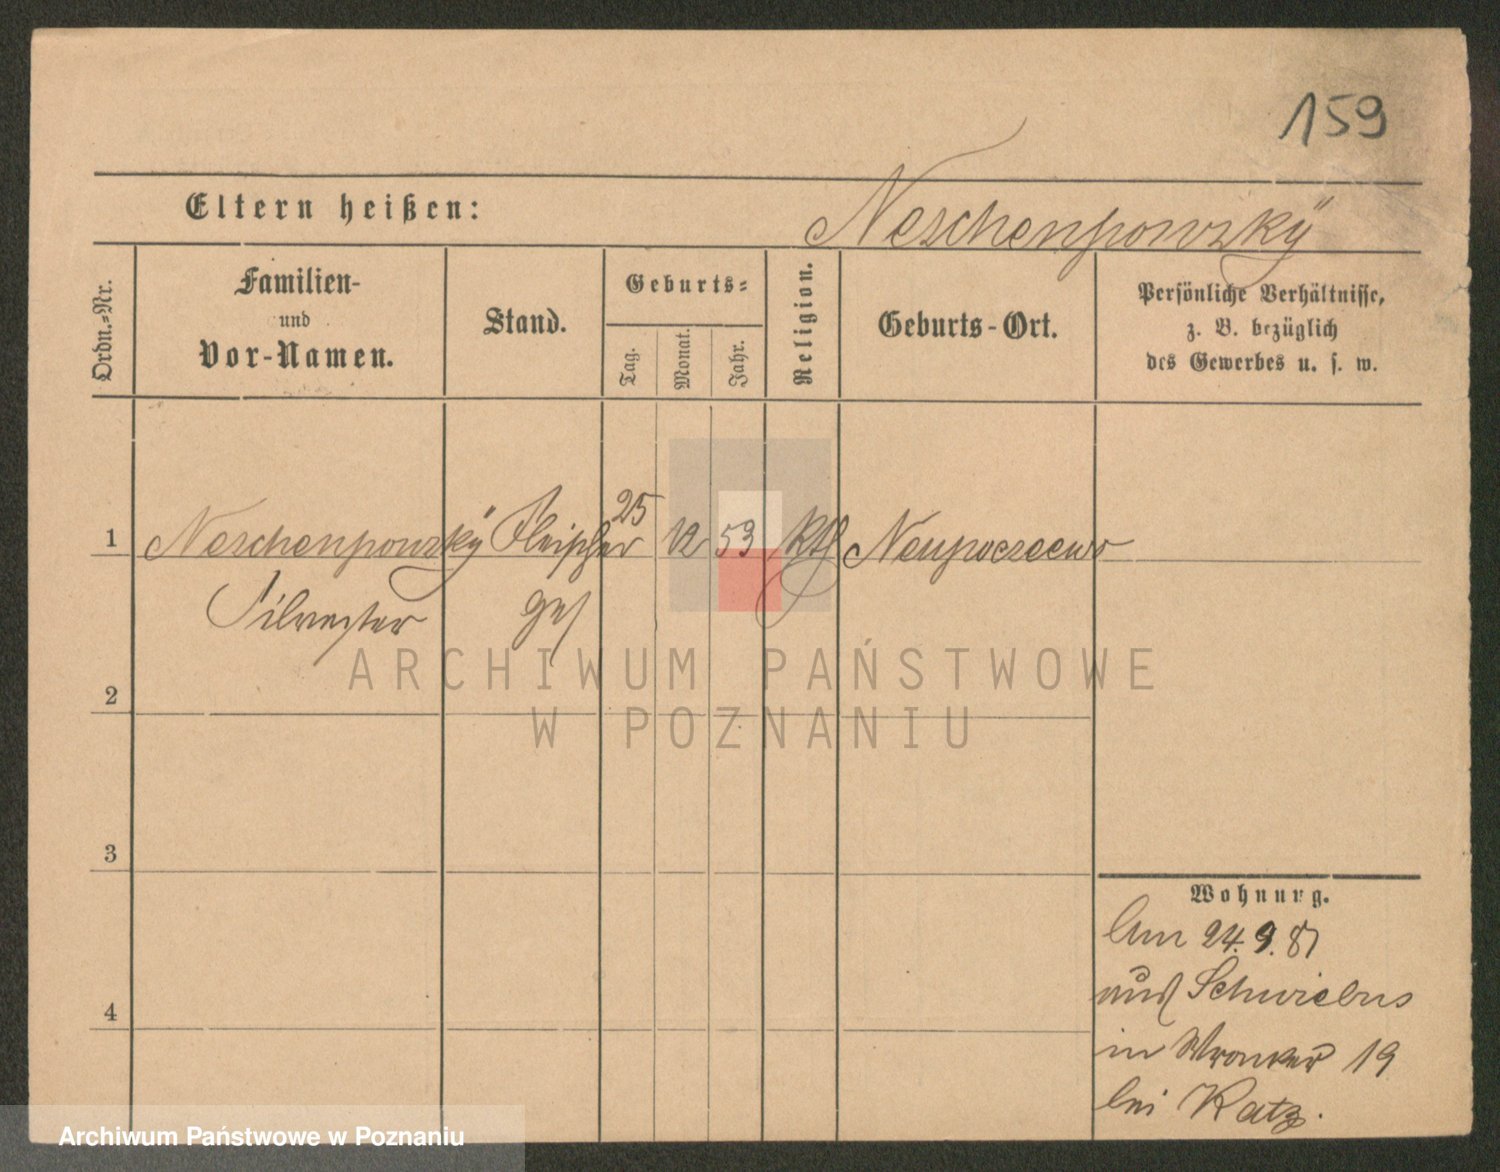 159
Eltern heißen:
Neschenpowzkÿ
Ordn.-Nr.
Familien-
und
Vor-Namen.
Stand.
Geburts-
Tag.
Monat.
Jahr.
Religion.
Geburts-Ort.
Persönliche Verhältnisse,
z. B. bezüglich
des Gewerbes u. s. w.
1
Neschenpowzkÿ Fleischer 25 12 53 kth
Silvester ges
2
3
4
Wohnung.
Am 24.9.81
aus Schwiebus
in Wronker 19
bei Katz.
ARCHIWUM PAŃSTWOWE
W POZNANIU
Archiwum Państwowe w Poznaniu